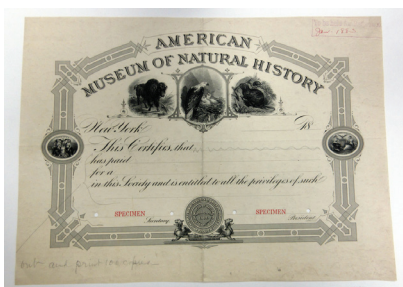 AMERICAN
MUSEUM OF NATURAL HISTORY
New York 18
This Certifies, that
has paid
for a
in this Society and is entitled to all the privileges of such
SPECIMEN SPECIMEN
Secretary President